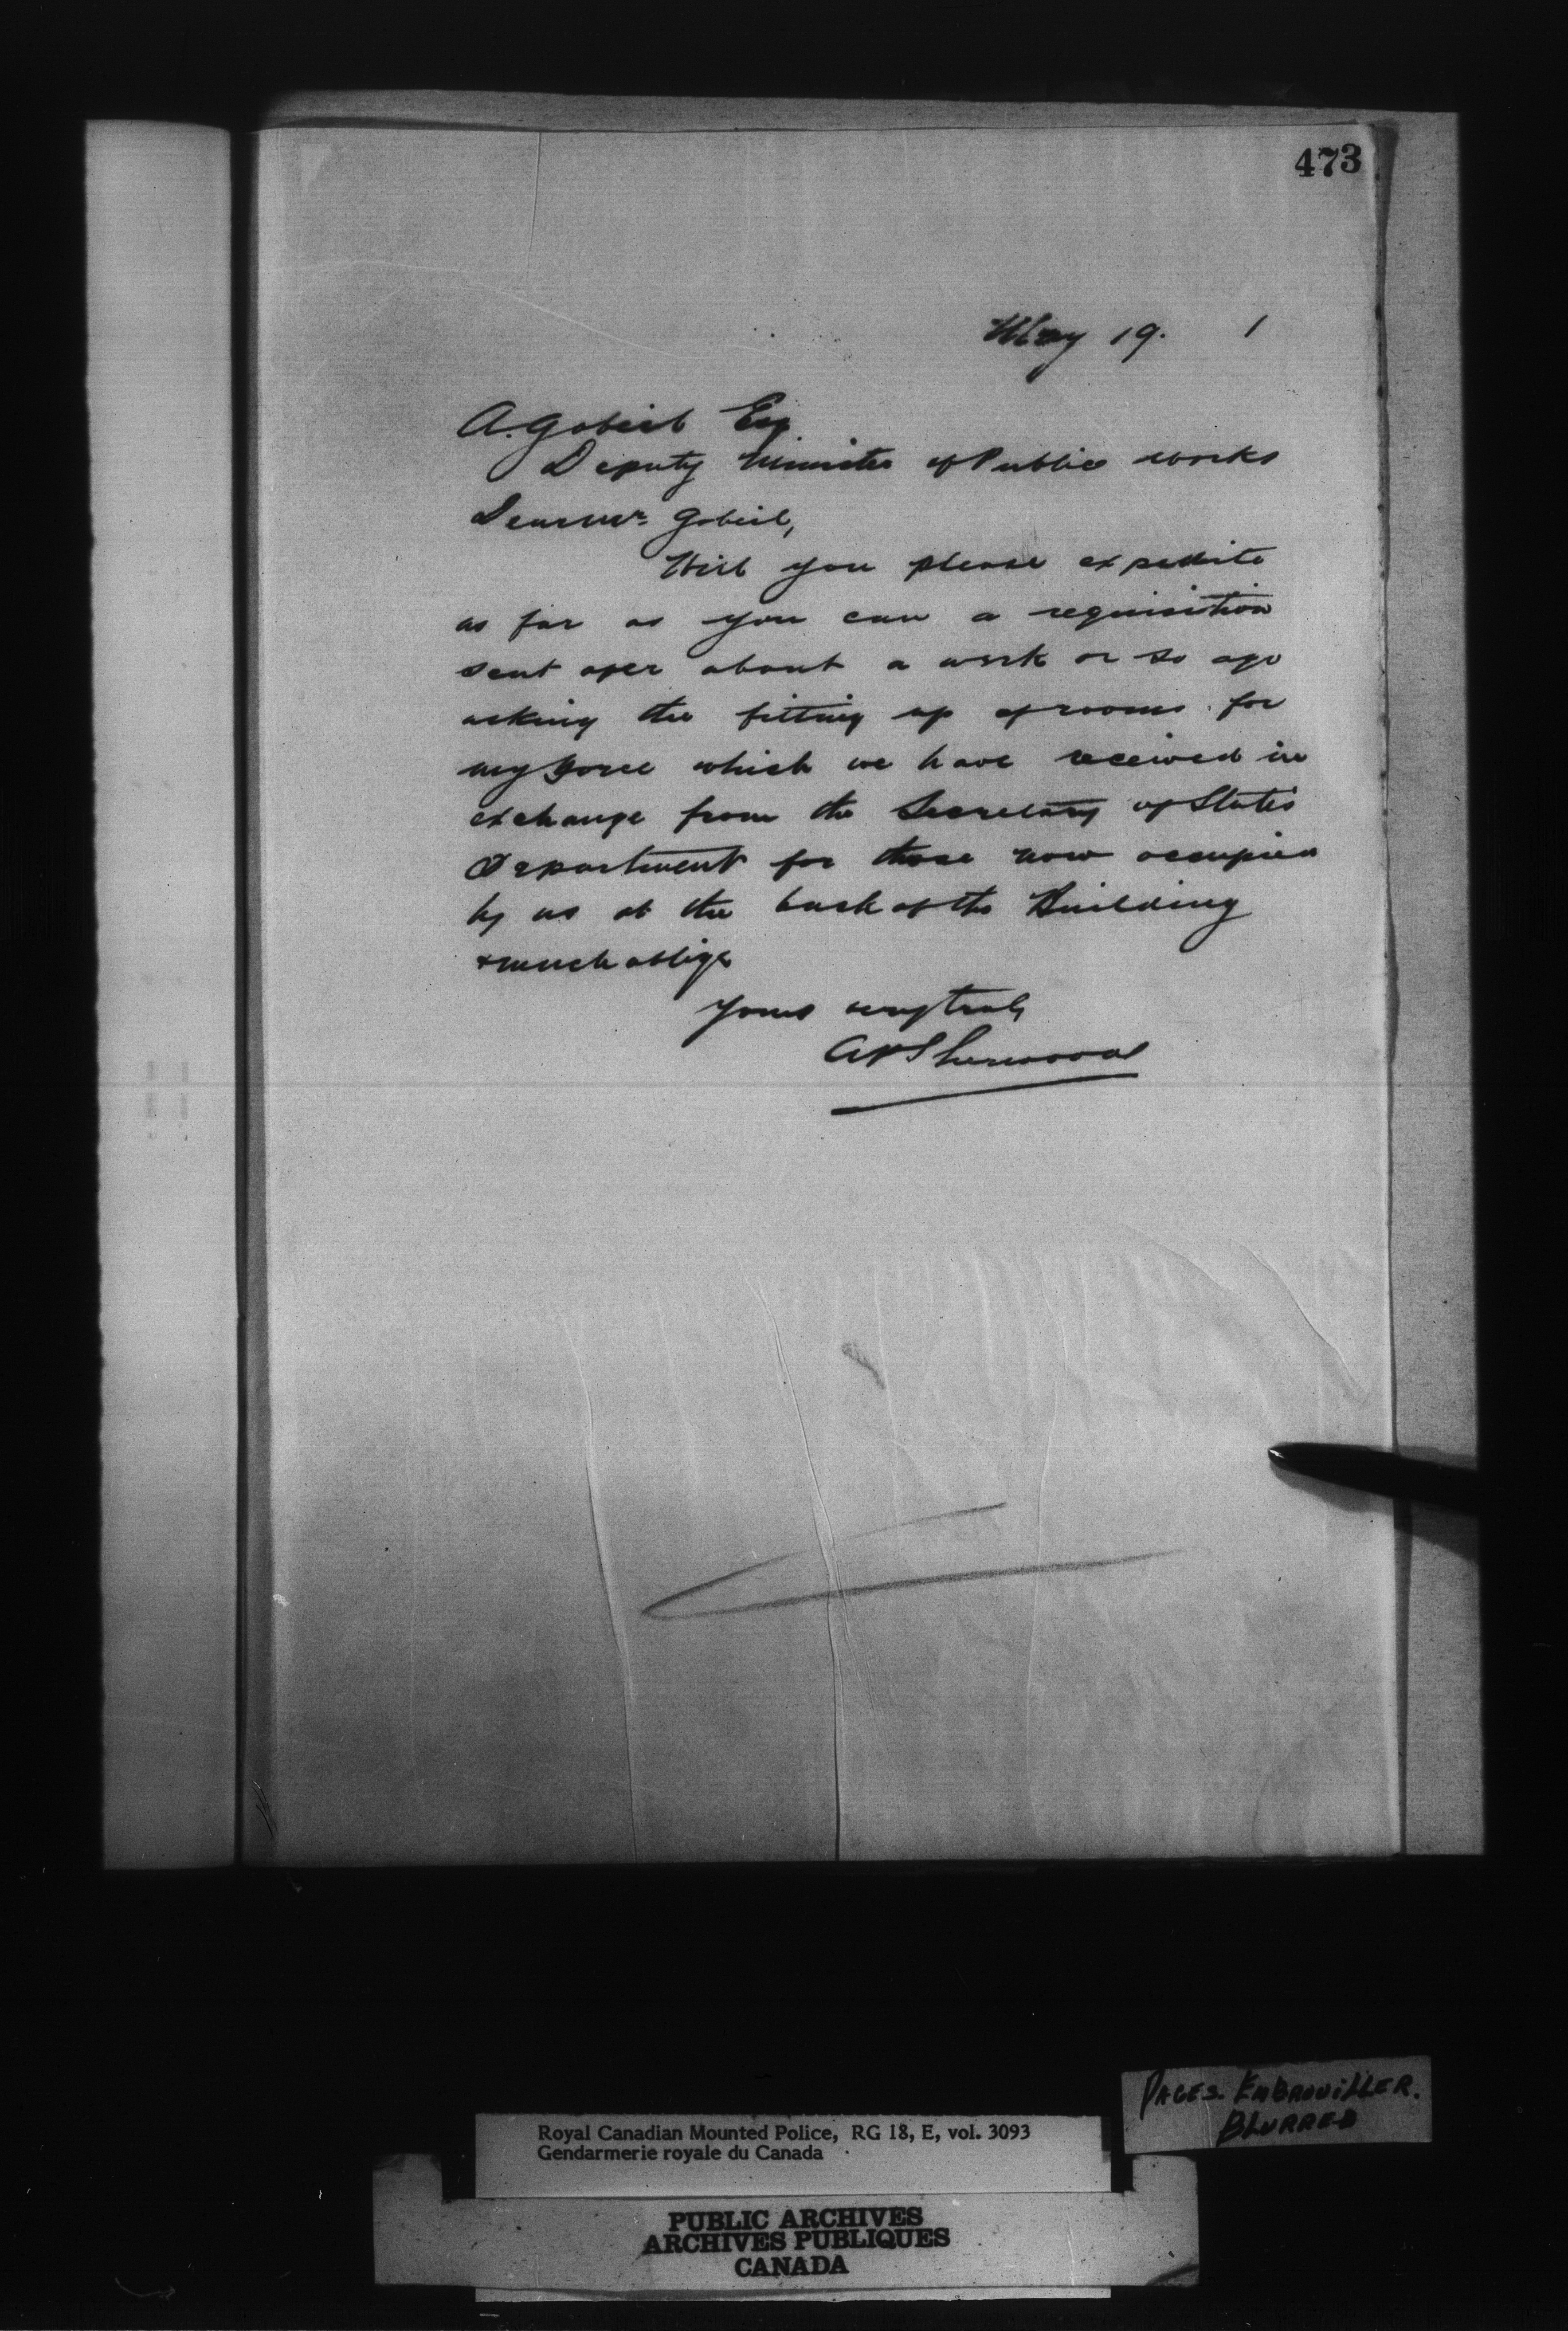 473
May 19. 1
A. Gobeil Esq
Deputy Minister of Public Works
Dear Mr. Gobeil,
Will you please expedite
as far as you can a requisition
sent over about a week or so ago
asking the fitting up of rooms for
my force which we have received in
exchange from the Secretary of State's
Department for those now occupied
by us at the back of the Building
& much oblige
Yours very truly
AP Sherwood
PAGES. EMBROUILLER.
BLURRED
Royal Canadian Mounted Police, RG 18, E, vol. 3093
Gendarmerie royale du Canada
PUBLIC ARCHIVES
ARCHIVES PUBLIQUES
CANADA